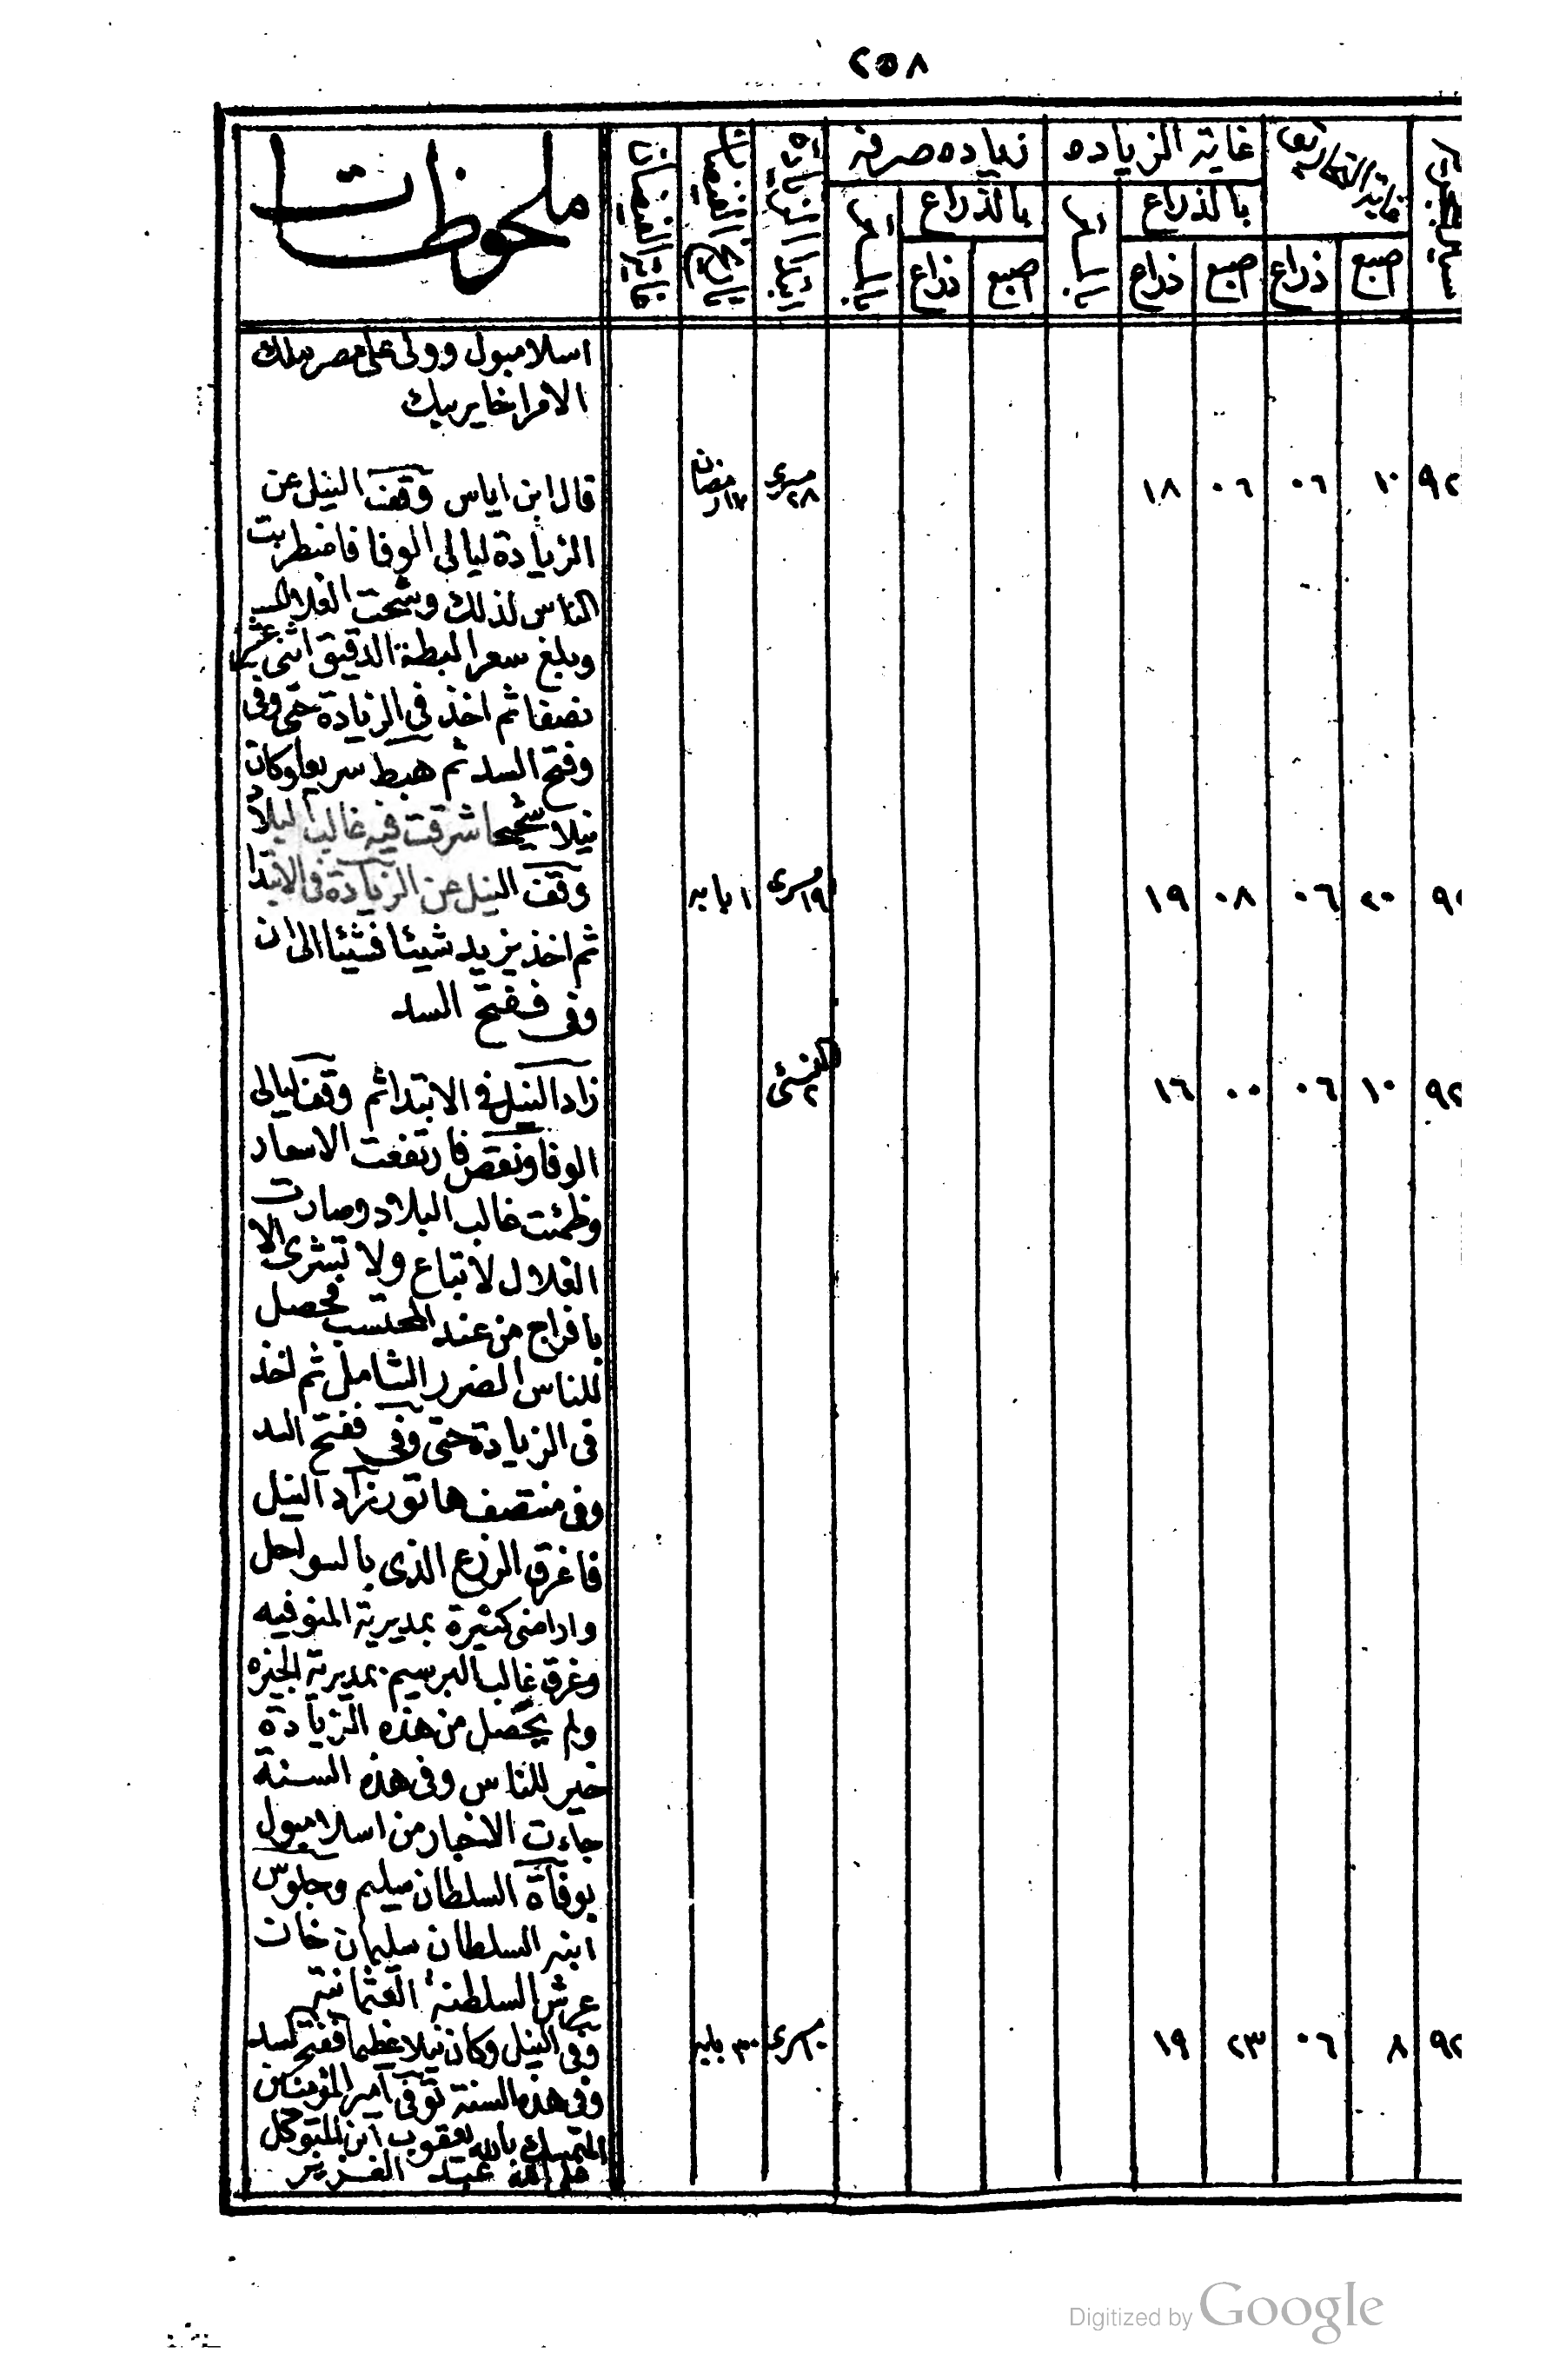 ٢٥٨
غاية الزياده
زياده صرفه
ملحوظات
بالذراع
بالذراع
اصبع
ذراع
اصبع
ذراع
اصبع
ذراع
اسلامبول وولى على مصر ملك
الامرا خاير بيك
٩٢ ١٠ ٠٦ ٠٦ ١٨ مسرى ٢٨ ١٧ رمضان
قال ابن اياس وقف النيل عن
الزيادة ليالى الوفا فاضطربت
الناس لذلك وشحت الغلال
وبلغ سعر البطة الدقيق اثنى عشر
نصفا ثم اخذ فى الزيادة حتى وفى
وفتح السد ثم هبط سريعا وكان
نيلا شحيحا شرقت فيه غالب البلاد
٩٢ ٢٠ ٠٦ ٠٨ ١٩ مسرى ١٩ ١ بابه
وقف النيل عن الزيادة فى الابتدا
ثم اخذ يزيد شيئا فشيئا الى ان
وفى ففتح السد
٩٢ ١٠ ٠٦ ٠٠ ١٦ ٢
زاد النيل فى الابتدا ثم وقف ليالى
الوفا ونقص فارتفعت الاسعار
وظمئت غالب البلاد وصارت
الغلال لا تباع ولا تشرى الا
بافراج من عند المحتسب فحصل
للناس الضرر الشامل ثم اخذ
فى الزيادة حتى وفى ففتح السد
وفى منتصف هاتور زاد النيل
فاغرق الزرع الذى بالسواحل
واراضى كثيرة بمديرية المنوفيه
وغرق غالب البرسيم بمديرية الجيزه
ولم يحصل من هذه الزيادة
خير للناس وفى هذه السنة
جاءت الاخبار من اسلامبول
بوفاة السلطان سليم وجلوس
ابنه السلطان سليمان خان
عرش السلطنة العثمانية
٩٢ ٨ ٠٦ ٢٣ ١٩ مسرى ٣٠ بابه
وفى النيل وكان نيلا عظيما ففتح السد
وفى هذه السنة توفى امير المؤمنين
المتمسك بالله يعقوب ابن المتوكل
على الله عبد العزيز
Digitized by Google